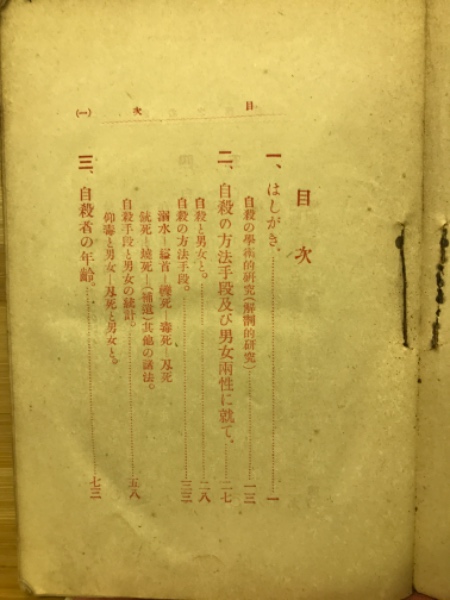 目次 (一)
目次
一、はしがき。 一
自殺の學術的研究(解剖的研究) 一三
二、自殺の方法手段及び男女兩性に就て。 二七
自殺と男女と。 二八
自殺の方法手段。 三三
溺水―縊首―轢死―毒死―刄死
銃死―燒死―(補遺)其他の諸法。
自殺手段と男女の統計。 五八
仰毒と男女―刄死と男女と。
三、自殺者の年齡。 七三